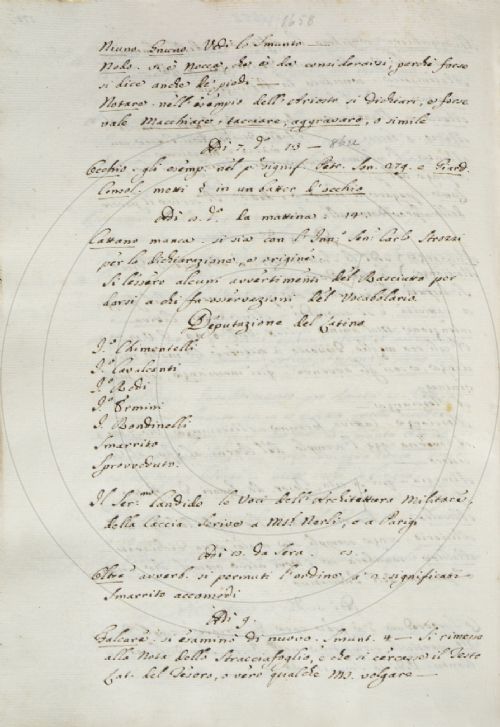 1658
Niuno. Gniuno. Vedi lo Smunto —
Nodo. si è Nocca, che è da considerarsi, perche forse
si dice anche de' piedi —
Notare. nell'esempio dell'Ariosto si dichiari, e forse
vale Macchiare, tacciare, aggravare, o simile
Adi 7. d.º 13 —
Occhio. gli esemp. nel pº signif. Petr. Son. 279. e Giard.
Consol. metti § in un batter d'occhio
Adi d.º la mattina 14
Cattano manca. si via con l' Sen: Carlo Strozzi
per la dichiarazione, e origine
Si lessero alcuni avvertimenti del per
darsi a chi fa osservazioni del Vocabolario.
Deputazione del Latino
J.º Chimentelli
J.º Cavalcanti
J.º Redi
J.º Ermini
J.º Bondinelli
Smarrito
Sprovveduto.
Il Ser.mo Candido le Voci dell'Architettura Militare,
della Caccia. Scrive a Nerli, e a Parigi
Adi da Sera.
Oltre avverb. si permuti l'ordine a 2 significati
Smarrito accomodi
Adi 9.
si esaminò di nuovo. Smunt. 4 — Si rimesse
alla Nota dello Stracciafoglio, e che si cercasse il Testo
Lat. del Tesoro, o vero qualche MS. volgare —